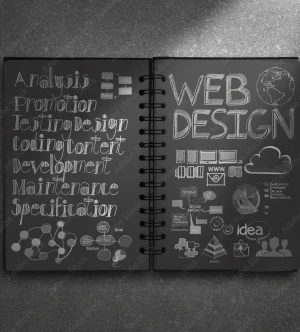 Analysis
Promotion
Testing Design
Coding Content
Development
Maintenance
Specification
WEB
DESIGN
WWW
idea